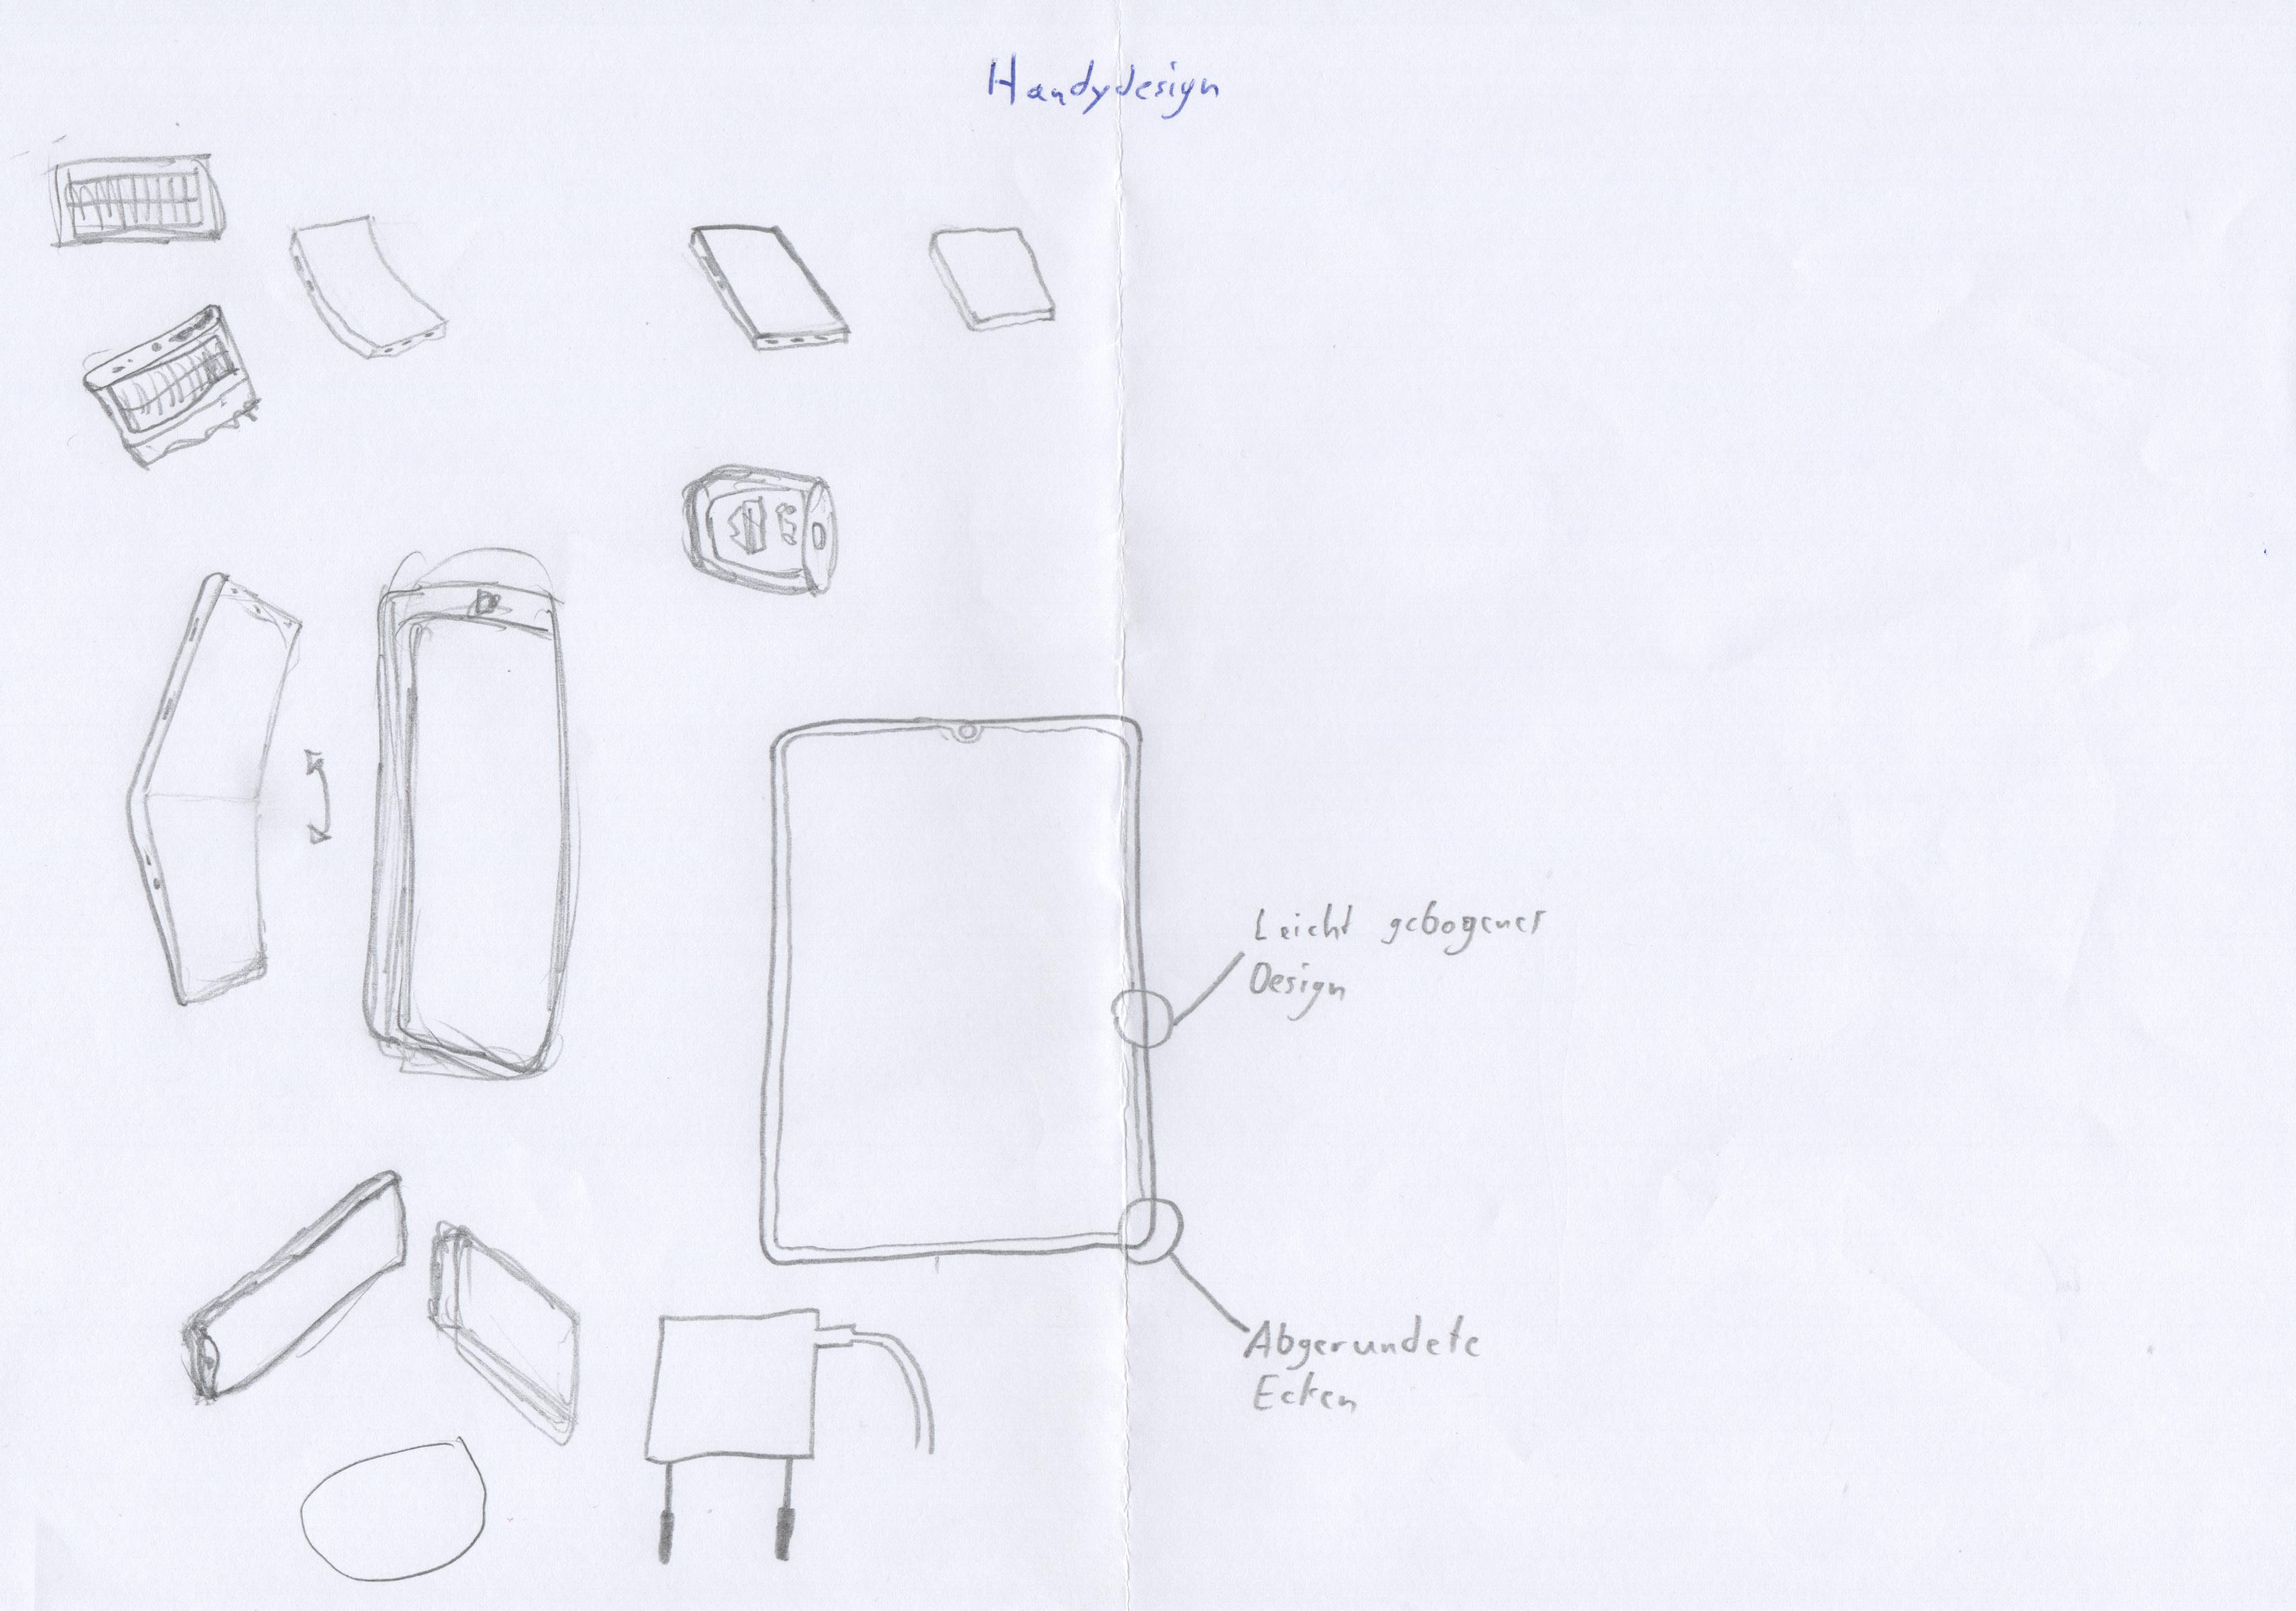 Handydesign
Leicht gebogener
Design
Abgerundete
Ecken